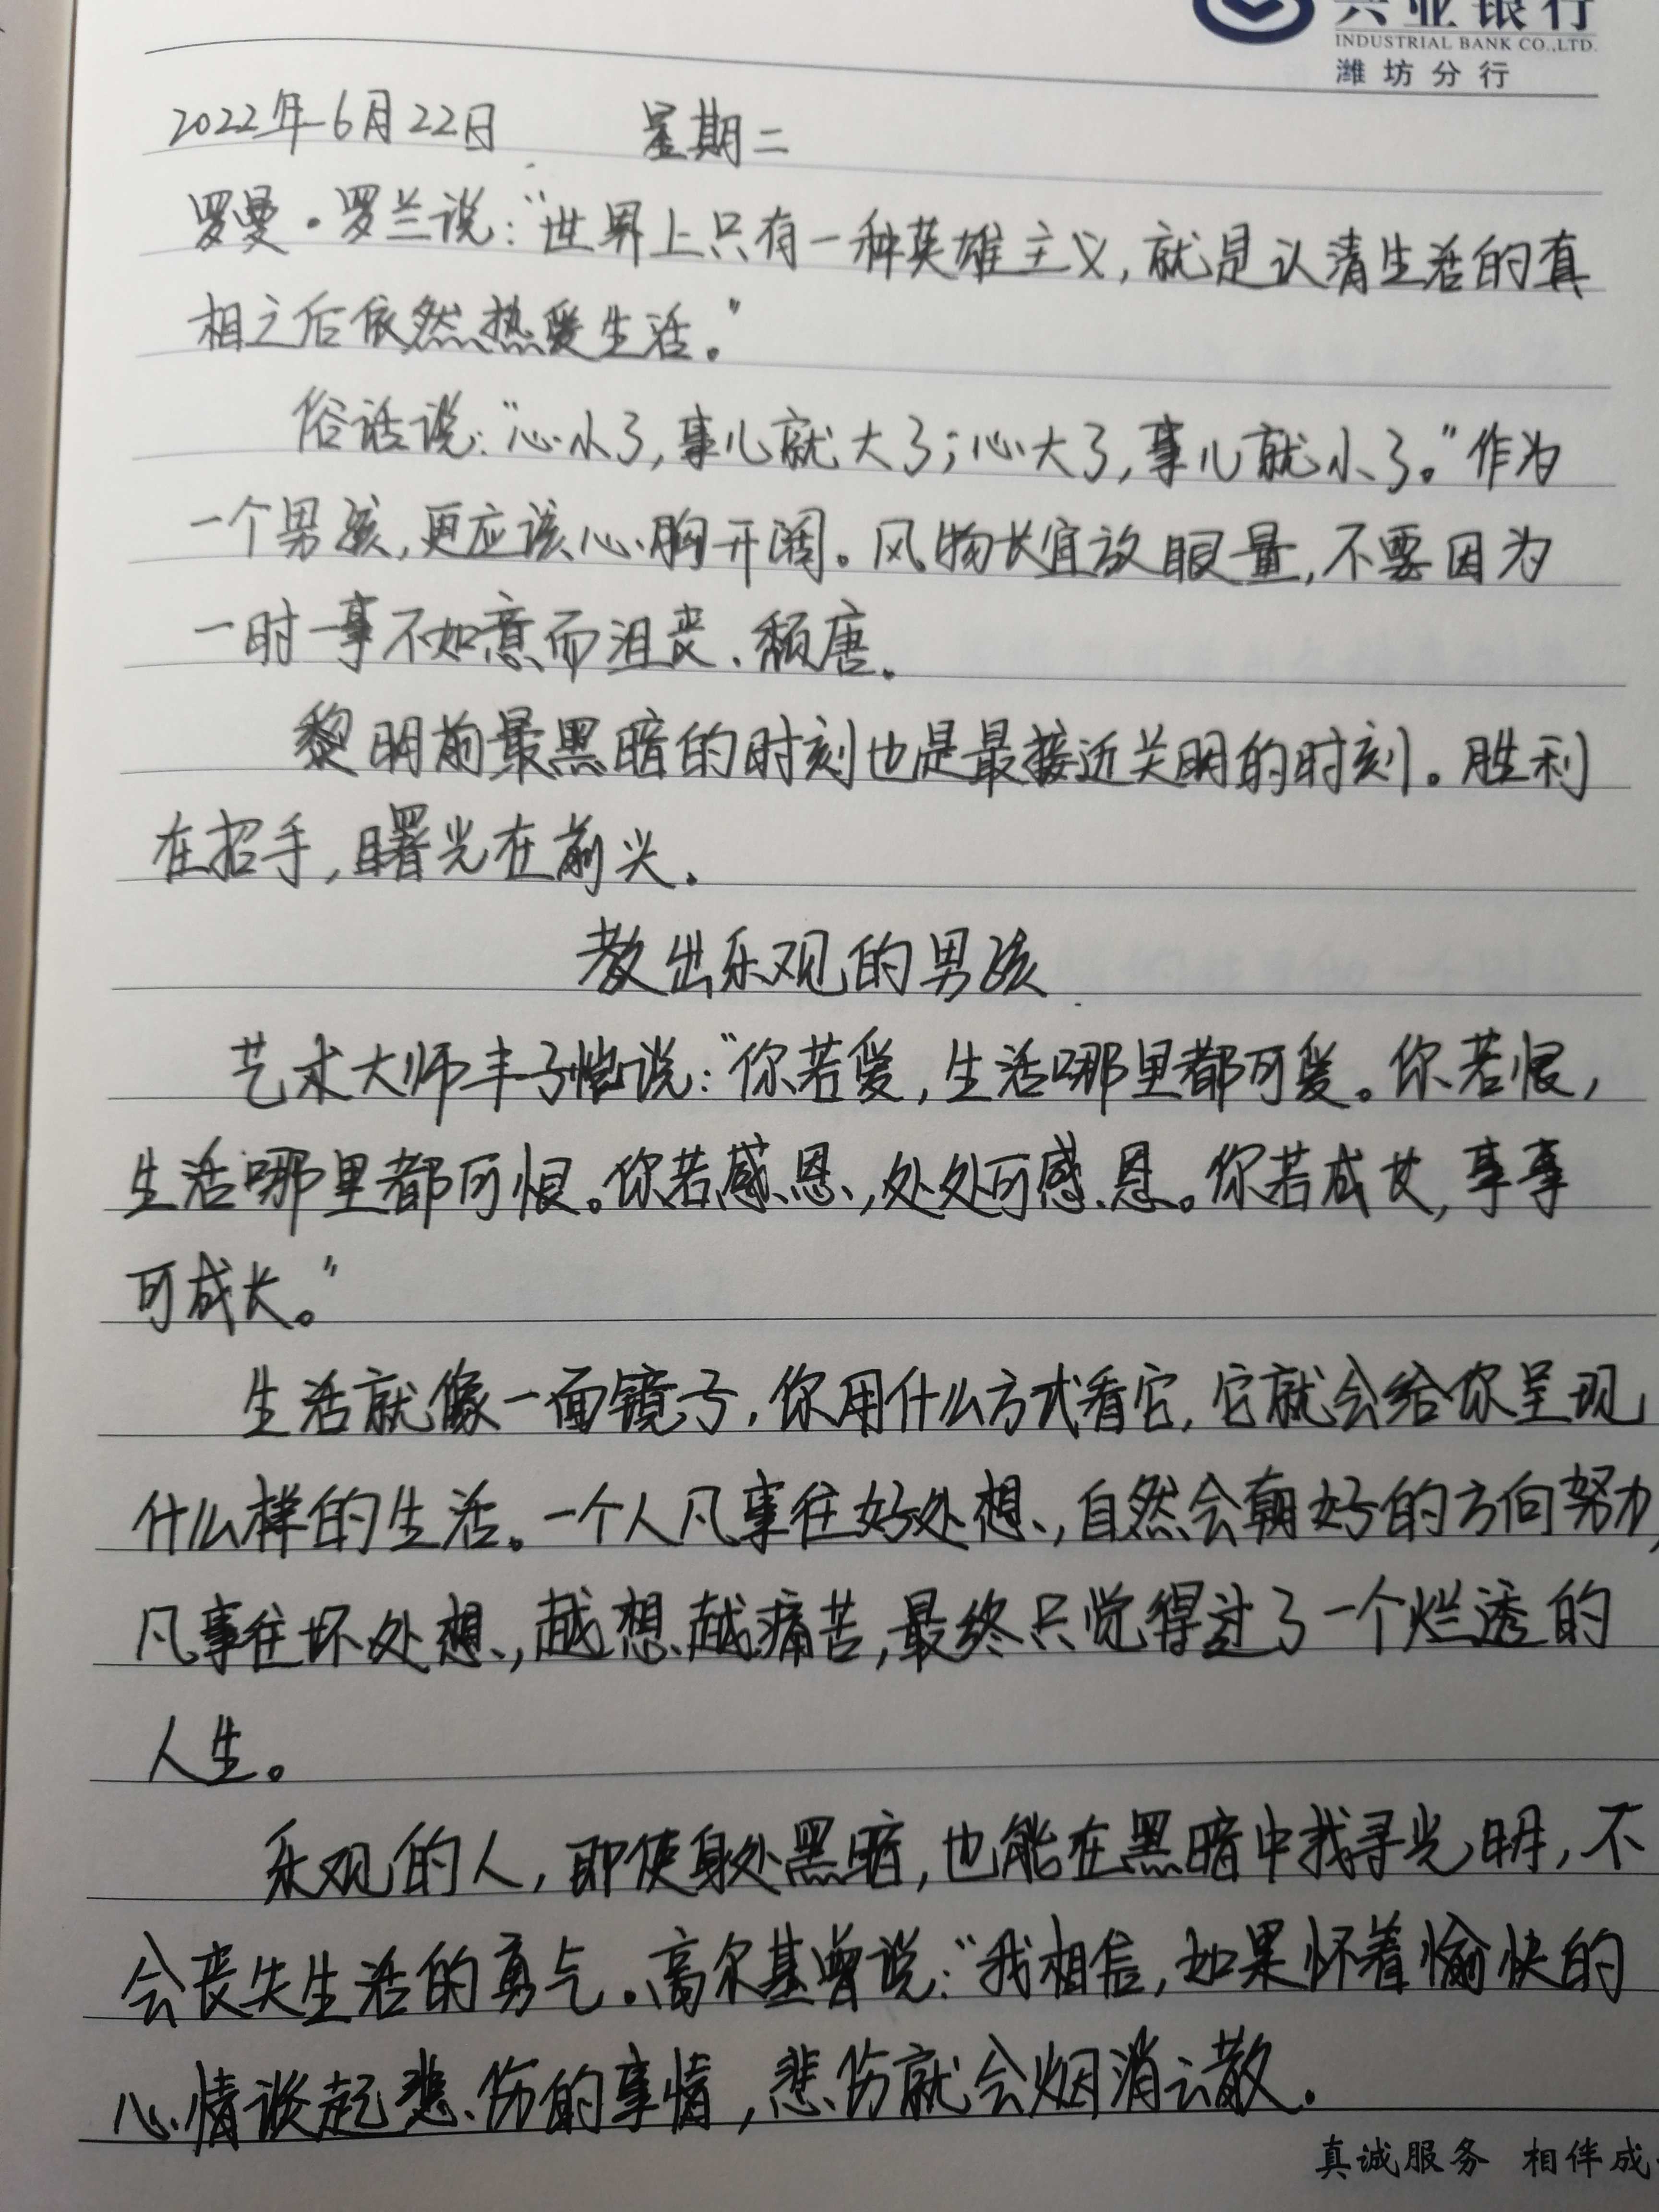 兴业银行
INDUSTRIAL BANK CO.,LTD.
潍坊分行
2022年6月22日 星期二
罗曼·罗兰说:“世界上只有一种英雄主义,就是认清生活的真
相之后依然热爱生活。”
俗话说:“心小了,事儿就大了;心大了,事儿就小了。”作为
一个男孩,更应该心胸开阔。风物长宜放眼量,不要因为
一时一事不如意而沮丧、颓唐。
黎明前最黑暗的时刻也是最接近光明的时刻。胜利
在招手,曙光在前头。
教出乐观的男孩
艺术大师丰子恺说:“你若爱,生活哪里都可爱。你若恨,
生活哪里都可恨。你若感恩,处处可感恩。你若成长,事事
可成长。”
生活就像一面镜子,你用什么方式看它,它就会给你呈现
什么样的生活。一个人凡事往好处想,自然会朝好的方向努力,
凡事往坏处想,越想越痛苦,最终只觉得过了一个烂透的
人生。
乐观的人,即使身处黑暗,也能在黑暗中找寻光明,不
会丧失生活的勇气。高尔基曾说:“我相信,如果怀着愉快的
心情谈起悲伤的事情,悲伤就会烟消云散。
真诚服务 相伴成